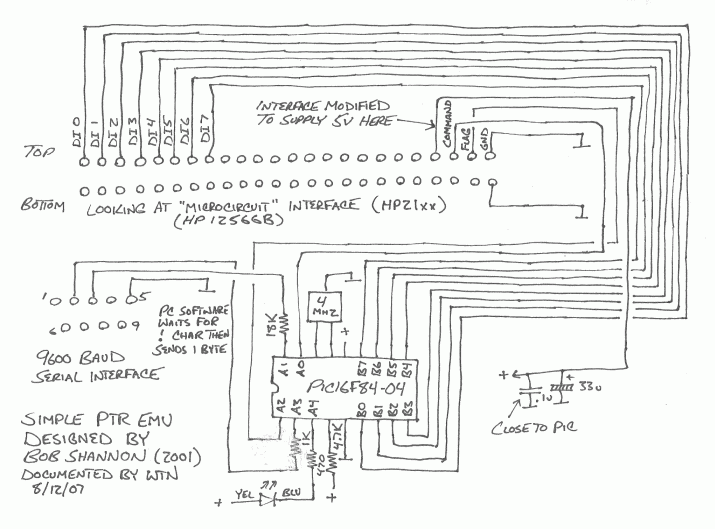 DI0
DI1
DI2
DI3
DI4
DI5
DI6
DI7
INTERFACE MODIFIED
TO SUPPLY 5V HERE
COMMAND
FLAG
GND
TOP
BOTTOM
LOOKING AT "MICROCIRCUIT" INTERFACE (HP21XX)
(HP 12566B)
1
5
6
9
PC SOFTWARE
WAITS FOR
! CHAR THEN
SENDS 1 BYTE
9600 BAUD
SERIAL INTERFACE
18K
4
MHZ
+
A1
A0
B7
B6
B5
B4
PIC16F84-04
A2
A3
A4
B0
B1
B2
B3
1K
470
4.7K
+
.1u
+
33u
CLOSE TO PIC
SIMPLE PTR EMU
DESIGNED BY
BOB SHANNON (2001)
DOCUMENTED BY WTN
8/12/07
+
YEL
BLU
+